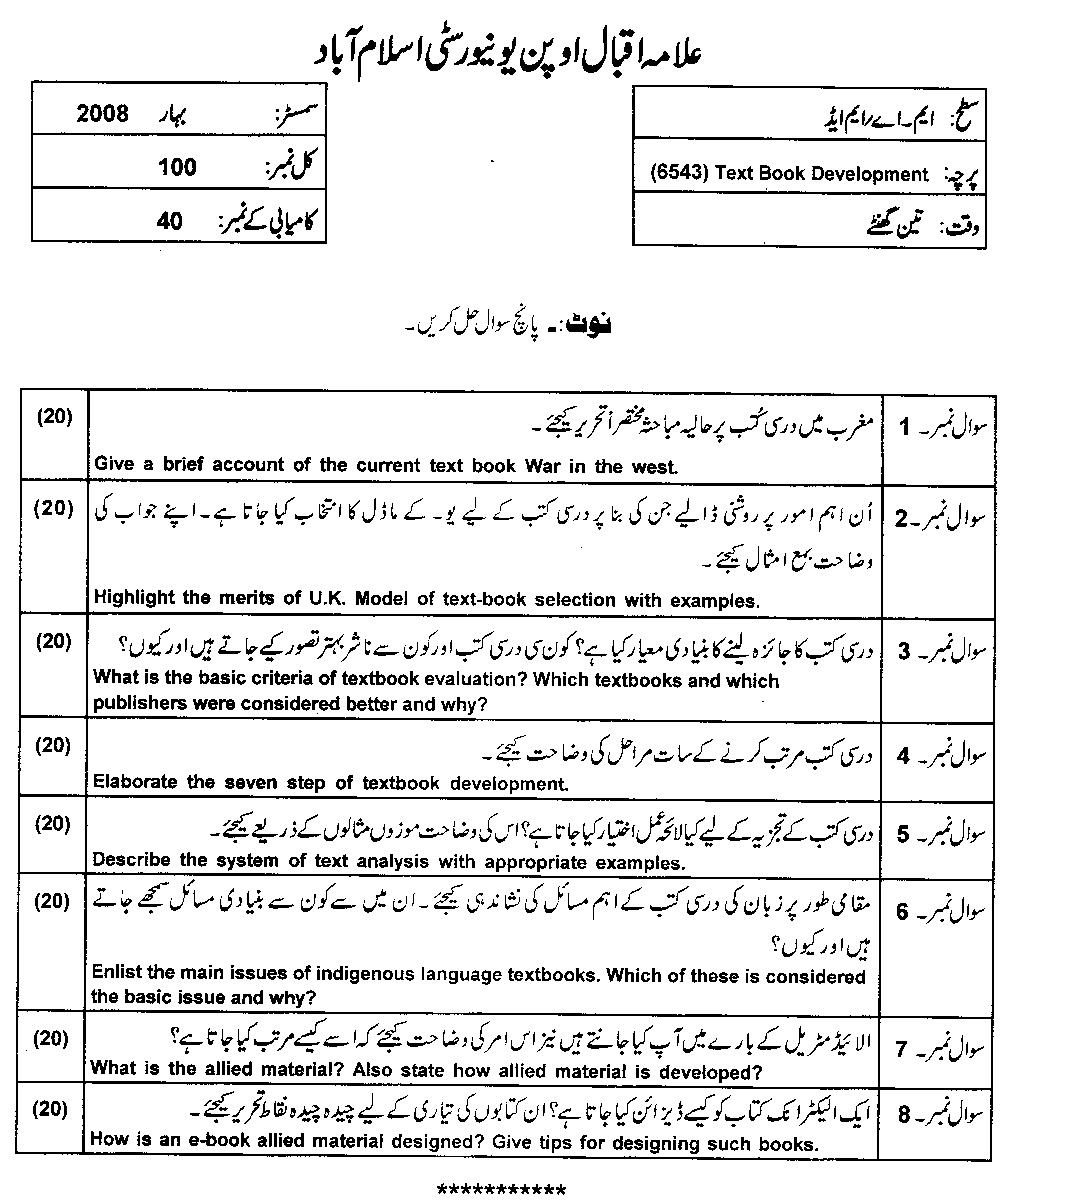 علامہ اقبال اوپن یونیورسٹی اسلام آباد
سطح: ایم۔اے/ایم ایڈ
سمسٹر: بہار 2008
پرچہ: Text Book Development (6543)
کل نمبر: 100
وقت: تین گھنٹے
کامیابی کے نمبر: 40
نوٹ:۔ پانچ سوال حل کریں۔
سوال نمبر۔ 1 مغرب میں درسی کُتب پر حالیہ مباحثہ مختصراً تحریر کیجئے۔ (20)
Give a brief account of the current text book War in the west.
سوال نمبر۔2 اُن اہم امور پر روشنی ڈالیے جن کی بنا پر درسی کتب کے لیے یو۔ کے ماڈل کا انتخاب کیا جاتا ہے۔ اپنے جواب کی (20)
وضاحت بمع امثال کیجئے۔
Highlight the merits of U.K. Model of text-book selection with examples.
سوال نمبر۔ 3 درسی کتب کا جائزہ لینے کا بنیادی معیار کیا ہے؟ کون سی درسی کتب اور کون سے ناشر بہتر تصور کیے جاتے ہیں اور کیوں؟ (20)
What is the basic criteria of textbook evaluation? Which textbooks and which
publishers were considered better and why?
سوال نمبر۔ 4 درسی کتب مرتب کرنے کے سات مراحل کی وضاحت کیجئے۔ (20)
Elaborate the seven step of textbook development.
سوال نمبر۔ 5 درسی کتب کے تجزیہ کے لیے کیا لائحہ عمل اختیار کیا جاتا ہے؟ اس کی وضاحت موزوں مثالوں کے ذریعے کیجئے۔ (20)
Describe the system of text analysis with appropriate examples.
سوال نمبر۔ 6 مقامی طور پر زبان کی درسی کتب کے اہم مسائل کی نشاندہی کیجئے۔ ان میں سے کون سے بنیادی مسائل سمجھے جاتے (20)
ہیں اور کیوں؟
Enlist the main issues of indigenous language textbooks. Which of these is considered
the basic issue and why?
سوال نمبر۔ 7 الائیڈ مٹریل کے بارے میں آپ کیا جانتے ہیں نیز اس امر کی وضاحت کیجئے کہ اسے کیسے مرتب کیا جاتا ہے؟ (20)
What is the allied material? Also state how allied material is developed?
سوال نمبر۔ 8 ایک الیکٹرانک کتاب کو کیسے ڈیزائن کیا جاتا ہے؟ ان کتابوں کی تیاری کے لیے چیدہ چیدہ نقاط تحریر کیجئے۔ (20)
How is an e-book allied material designed? Give tips for designing such books.
***********